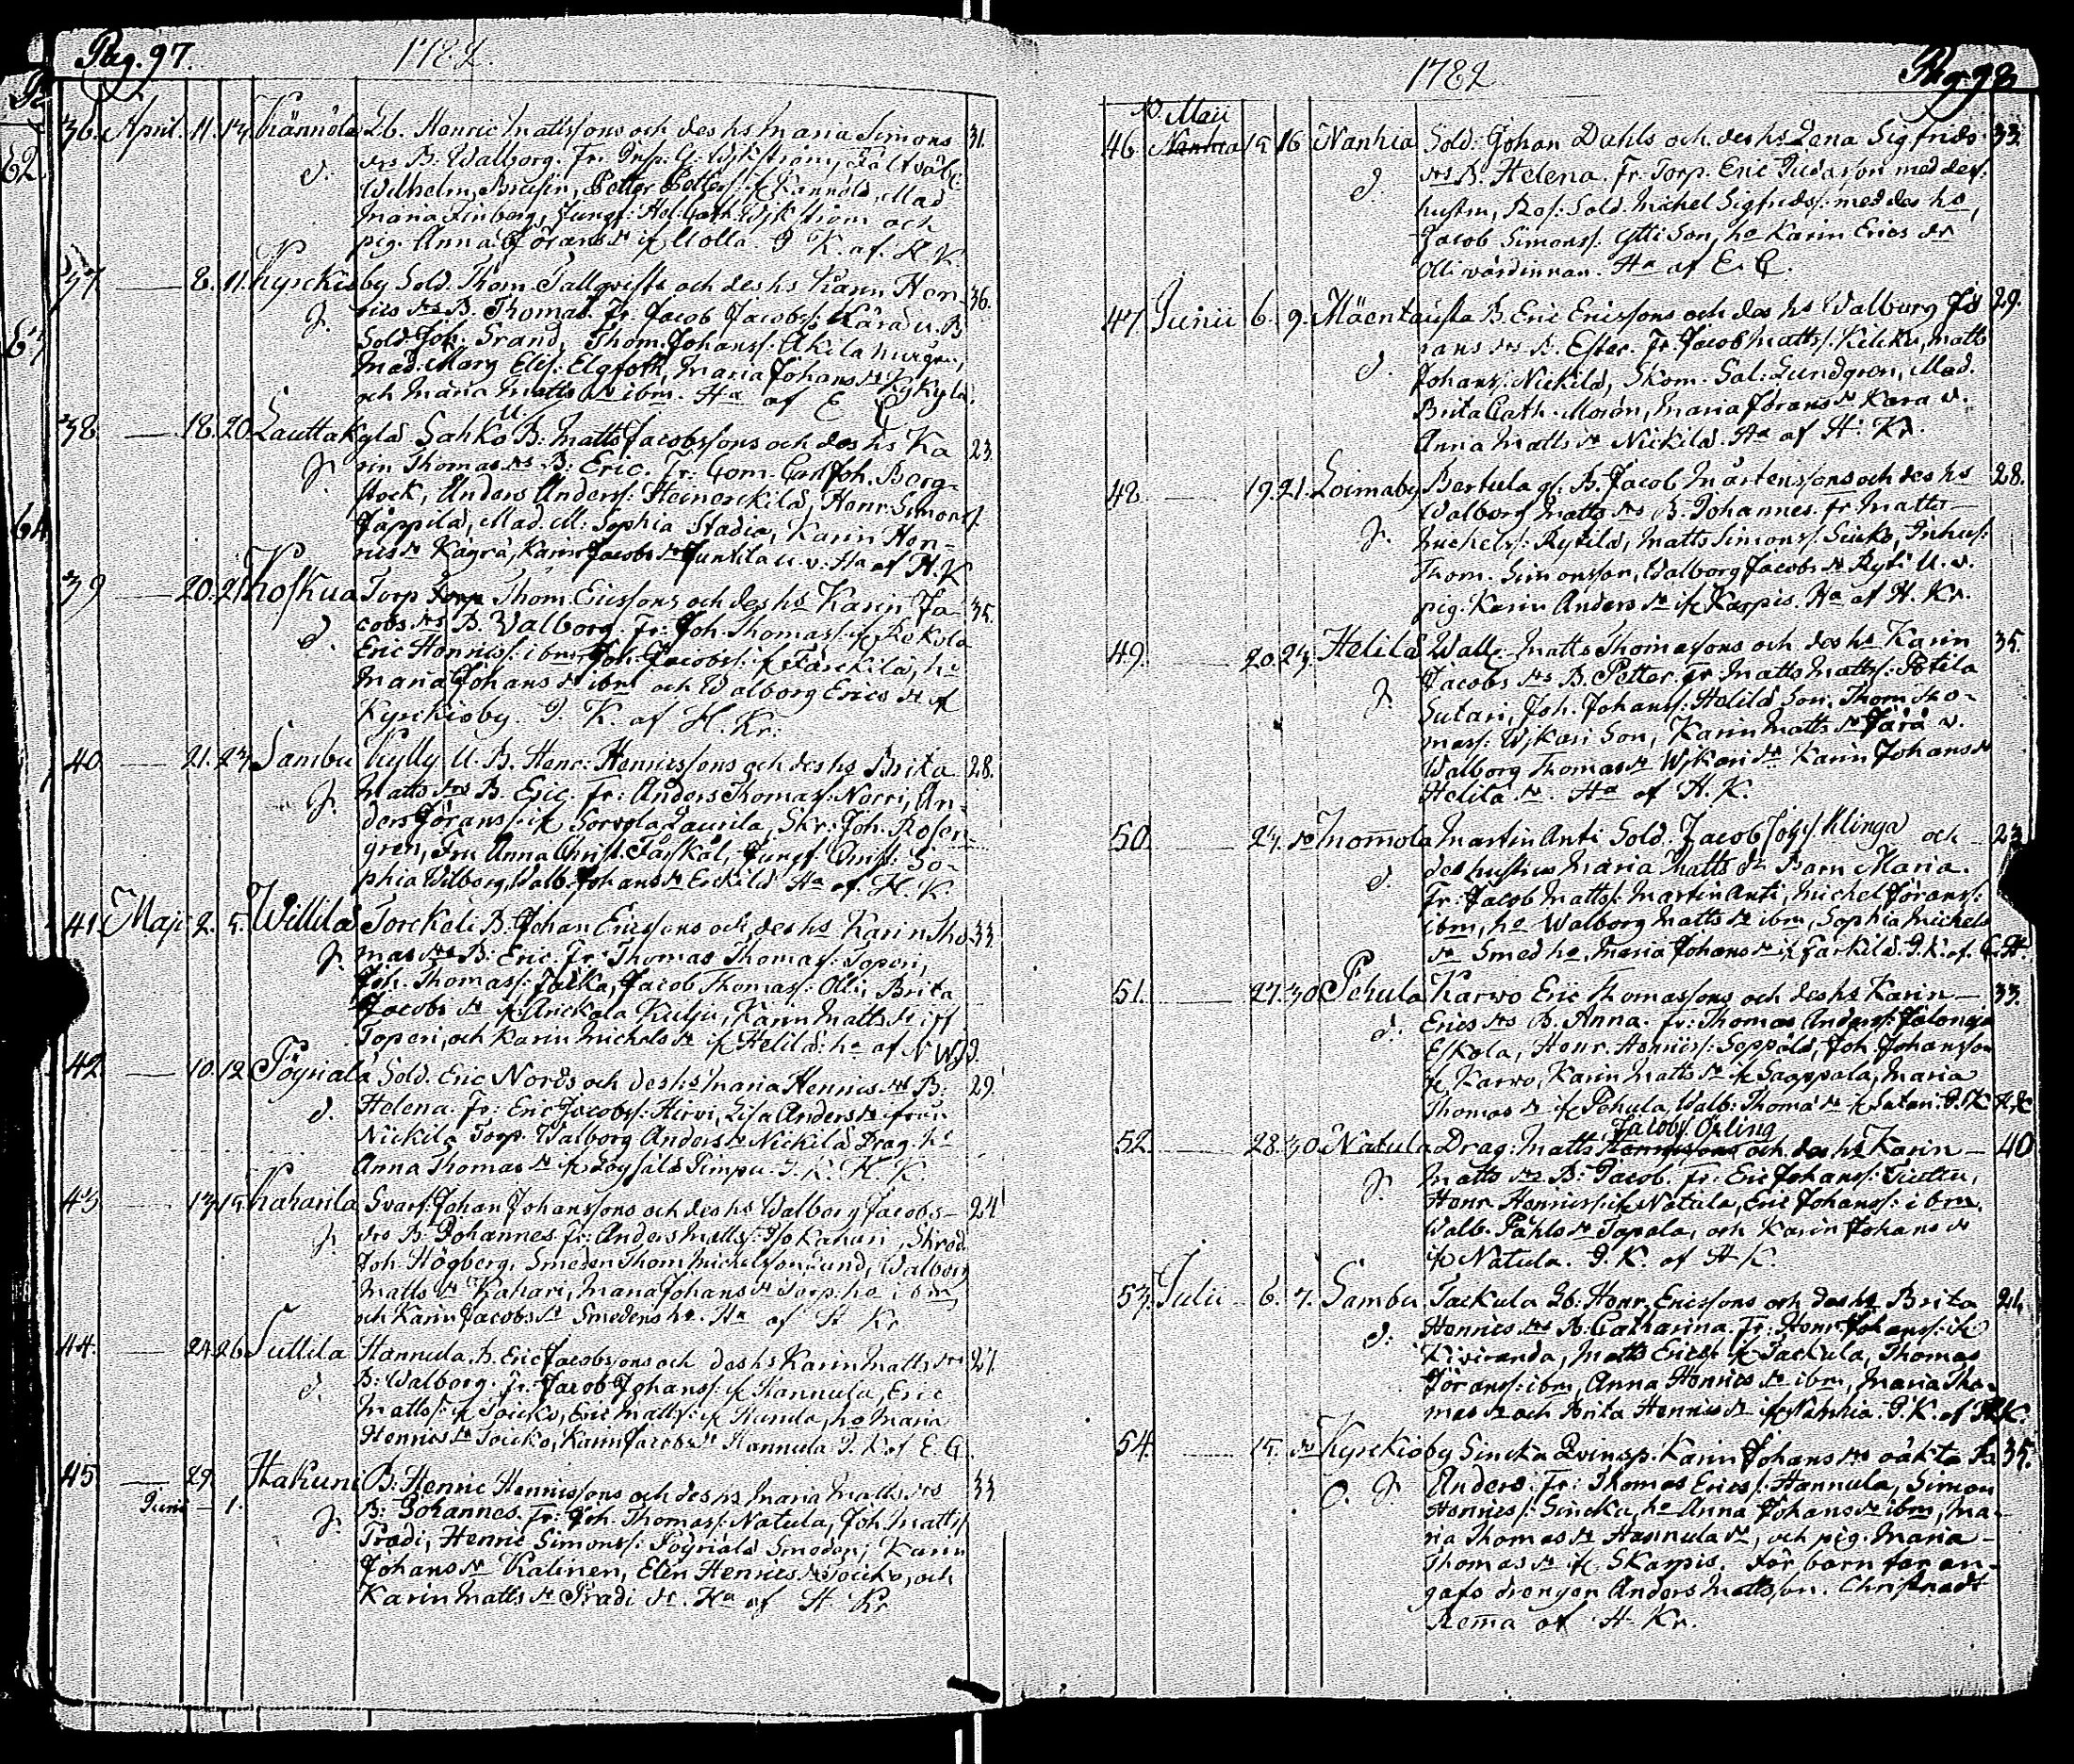 Pag. 97. 1782.
36. April. 11. 13. Kännölä Lb. Henric Mattssons och des hs Maria Simons 31.
drs B. Walborg. Fr. Insp. G. Wikström, Fältväb.
d. Wilhelm Brusin, Petter Petterss: if Kännölä, Mad
Maria Finberg, Jungf: Hel: Cath: Wikström och
pig. Anna Görans dr if Uolla. I K. af H. K.
37 — 8. 11. Kyrckioby Sold. Thom. Tallqvists och des hs Karin Hen- 36.
rics drs B. Thomas. Fr. Jacob Jacobss:
g. Sold Joh. Strand, Thom. Johanss: Akila
Mad: Marg Elis: Elgfoth, Maria Johans dr Kyrkylä
och Maria Matts dr ibm. Ha af E G
38 — 18. 20. Lauttakylä Sahko B: Matts Jacobssons och des hs Ka 23.
rin Thomas drs B: Eric. Fr: Com. Carl Joh. Berg-
g. stock, Anders Anderss: Heinerckilä, Henr Simonss.
Jäppilä, Mad. M: Sophia Stadia, Karin Hen-
rics dr Kägrä, Karin Jacobs dr Juntila u. v. Ha af H. K
39 — 20. 21. Koskua Torp Thom. Ericssons och des hs Karin Ja 35.
cobs drs B. Walborg. Fr: Joh. Thomass: if Kokola
d. Eric Henricss: ibm, Joh. Jacobss: if Färckilä, ho
Maria Johans dr ibm och Walborg Erics dr if
Kyrckioby. I. K. af H. Kr.
40 — 21. 23. Sambu Kylly U. B. Henr. Henricssons och des hs Brita 28.
Matts drs B. Eric. Fr: Anders Thomass: Norri, An-
g. ders Jöranss: if Sorvola Laurila, Skr: Joh. Rosen-
gren, Fru Anna Christ. Forskål, Jungf. Christ: So-
phia Wilborg, Walb. Johans dr Erckilä Ha af. H. K
41. Maji 2. 5. Willilä Torckeli B. Johan Ericssons och des hs Karin Tho 33
mas drs B: Eric. Fr: Thomas Thomass: Toperi,
g. Joh. Thomass: Jacka, Jacob Thomass: Olli, Brita
Jacobs dr if Anckola Kutju, Karin Matts dr if
Toperi, och Karin Michels dr if Helilä: ha af N Wjd.
42. — 10. 12. Pöyriälä Sold. Eric Nords och des hs Maria Henrics drs B: 29.
d. Helena. Fr: Eric Jacobss: Hirvi, Lisa Anders dr från
Nickilä Torp. Walborg Anders dr Nickilä Drag. hs
Anna Thomas dr if Pimpu. I. K. H. K.
43 — 13. 15. Kaharila Svarf: Johan Johanssons och des hs Walborg Jacobs- 24
drs B: Johannes. Fr: Anders Mattss: Iso Kahari, Skred.
g. Joh. Högberg, Smeden Thom Michelsson Lund, Walborg
Matts dr Kahari, Maria Johans dr Torp. ho ibm,
och Karin Jacobs dr Smedens ho. Ha af H Kr
44. — 24. 26. Suttila Hannula B. Eric Jacobssons och des hs Karin Matts drs 27.
B: Walborg. Fr. Jacob Johanss: if Hannula, Eric
d. Mattss: if Soicko, Eric Mattss: if Hannula, ho Maria
Henrics dr Soicko, Karin Jacobs dr Hannula I. K. af E. G.
45 — 29. Hakuni B: Henric Henricssons och des hs Maria Matts drs 33
Junii — 1. B: Johannes. Fr: Joh. Thomass: Natula, Joh. Mattss
g. Pradi, Henric Simonss: Pöyriälä Smeden, Karin
Johans dr Kalinen, Elin Henrics dr Soicko, och
Karin Matts dr Pradi dr. Ha af H Kr
1782 Pag. 98
Maii
46. 15 16 Nanhia Sold: Johan Dahls och des hs Lena Sigfrids 33.
drs B. Helena. Fr. Torp. Eric Judasson med des.
d. hustru, Ros: Sold. Michel Sigfridss: med des ho,
Jacob Simonss: Ylli Son, ho Karin Erics dr
Olli värdinnan. Ha af E. G.
47 Junii 6. 9. Mäentausta B. Eric Ericssons och des hs Walborg Jö 29.
rans drs B. Ester. Fr. Jacob Mattss: Kilcku, Matts
d. Johanss: Nickilä, Skom. Sal: Lundgren, Mad.
Brita Cath. Morén, Maria Jörans dr Kara v.
Anna Matts dr Nickilä. Ha af H. Kr.
48. — 19. 21. Loimaby Bertula gl. B. Jacob Mårtenssons och des hs 28.
Walborg Matts drs B. Johannes. fr Matts
g. Michelss: Rytilä, Matts Simonss: Seiko, Inhys:
Thom. Simonsson, Walborg Jacobs dr Ryti U. v.
pig. Karin Anders dr if Karpis. Ha af H. Kr.
49. — 20. 23. Helilä Walle Matts Thomassons och des hs Karin 35.
Jacobs drs B. Petter. Fr Matts Mattss: Potila
g. Sutari, Joh. Johanss: Helilä Son, Thom Tho-
mass: Wjkari Son, Karin Matts dr Järä v.
Walborg Thomas dr Wjkari dr Karin Johans dr
Helilä dr. Ha af H. K.
50. — 24. Inomola Martin Anti Sold. Jacob Klinga och 23
des hustrus Maria Matts drs barn Maria.
d. Fr: Jacob Mattss: Martin Anti, Michel Jöranss:
ibm, ho Walborg Matts dr ibm, Sophia Michels
dr Smed ho, Maria Johans dr if Färkilä. I. K. af. E. H.
51. — 27. 30 Pehula Karvo Eric Thomassons och des hs Karin — 33.
Erics drs B. Anna. fr: Thomas Anderss: Jalonoja
d. Eskola, Henr. Henricss: Seppälä, Joh. Johansson
if Karvo, Karin Matts dr if Saappala, Maria
Thomas dr if Pehula, Walb: Thomæ dr if Satari I. K H. K
Jacobss Örling
52. — 28. 30 Natula Drag. Matts och des hs Karin — 40
Matts drs B: Jacob. Fr: Eric Johanss:
g. Henr Henricss: if Natula, Eric Johanss: ibm.
Walb. Påhls dr Tapola, och Karin Johans dr
if Natula. I. K. af H K.
53. Julii 6. 7. Sambu Tackula Lb. Henr. Ericssons och des hs Brita 24.
Henrics drs B. Catharina. Fr: Henr Johanss: if
d. Kiviranda, Matts Ericss: if Tackula, Thomas
Jöranss: ibm, Anna Henrics dr ibm, Maria Tho-
mas dr och Brita Henrics dr if Nanhia. I. K. af H K.
54. — 15. Kyrckioby Sincka Qvinsp. Karin Johans drs oäkta B 35.
O. g. Anders: Fr: Thomas Ericss: Hannula, Simon
Henricss: Sincka, ho Anna Johans dr ibm, Ma-
ria Thomas dr Hannula dr, och pig. Maria —
Thomas dr if Skarpis. Får barn far an-
gafs drengen Anders Mattsson. Christnadt
Hema af H Kr.